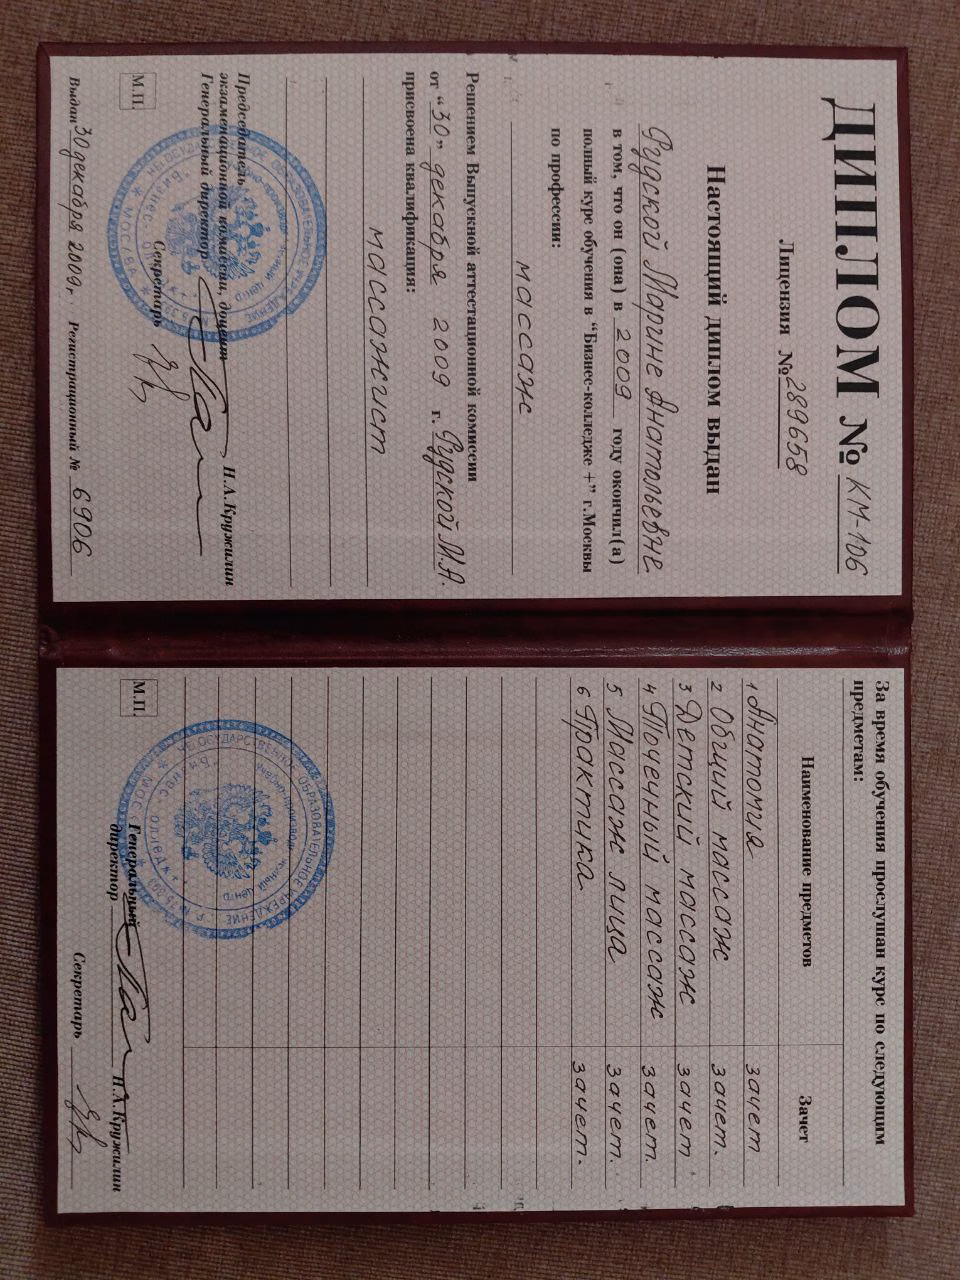 ДИПЛОМ № КМ-106
Лицензия № 289658
Настоящий диплом выдан
Рудской Марине Анатольевне
в том, что он (она) в 2009 году окончил(а)
полный курс обучения в "Бизнес-колледже +" г.Москвы
по профессии:
массаж
Решением Выпускной аттестационной комиссии
от "30" декабря 2009 г. Рудской М.А.
присвоена квалификация:
массажист
Председатель
экзаменационной комиссии, доцент
Генеральный директор Н.А.Кружилин
Секретарь
М.П.
Выдан 30 декабря 2009г. Регистрационный № 6906
За время обучения прослушан курс по следующим
предметам:
Наименование предметов Зачет
1 Анатомия зачет
2 Общий массаж зачет.
3 Детский массаж зачет
4 Точечный массаж зачет.
5 Массаж лица зачет.
6 Практика зачет.
М.П.
Генеральный
директор Н.А.Кружилин
Секретарь